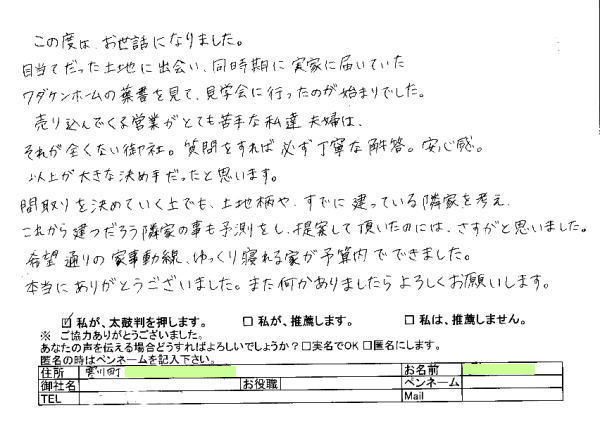 この度は、お世話になりました。
目当てだった土地に出会い、同時期に実家に届いていた
ワダケンホームの葉書を見て、見学会に行ったのが始まりでした。
売り込んでくる営業がとても苦手な私達夫婦は、
それが全くない御社。質問をすれば必ず丁寧な解答。安心感。
以上が大きな決め手だったと思います。
間取りを決めていく上でも、土地柄や、すでに建っている隣家を考え、
これから建つだろう隣家の事も予測をし、提案して頂いたのには、さすがと思いました。
希望通りの家事動線、ゆっくり寝れる家が予算内でできました。
本当にありがとうございました。また何かありましたらよろしくお願いします。
☑ 私が、太鼓判を押します。 □ 私が、推薦します。 □ 私は、推薦しません。
※ ご協力ありがとうございました。
あなたの声を伝える場合どうすればよろしいでしょうか？□実名でOK □匿名にします。
匿名の時はペンネームを記入下さい。
住所 寒川町 お名前
御社名 お役職 ペンネーム
TEL Mail